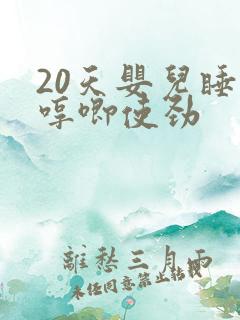 20天嬰兒睡
哼唧使劲
離愁三月雨
未经同意禁止转载